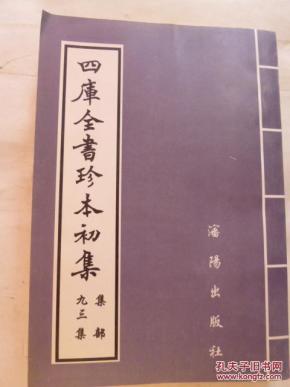 四庫全書珍本初集
集部
九三集
瀋陽出版社
孔夫子旧书网